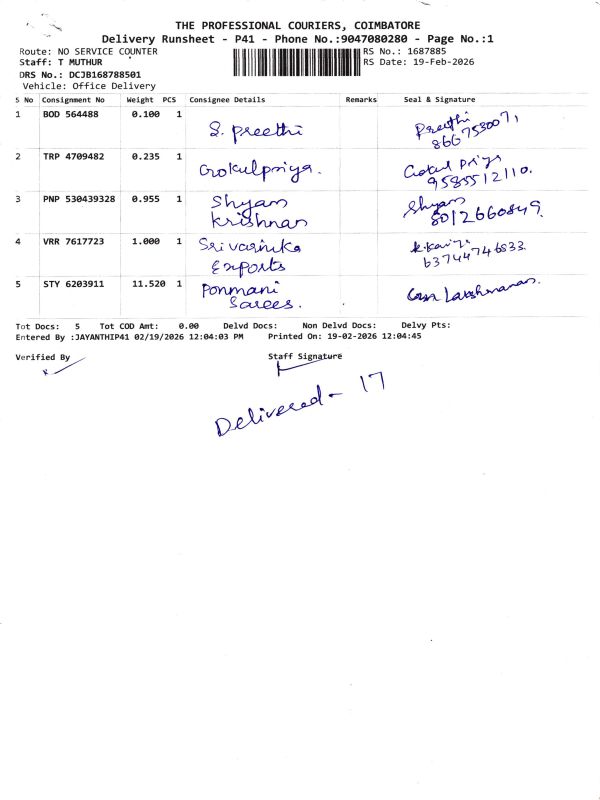 THE PROFESSIONAL COURIERS, COIMBATORE
Delivery Runsheet - P41 - Phone No.:9047080280 - Page No.:1
Route: NO SERVICE COUNTER
RS No.: 1687885
Staff: T MUTHUR
RS Date: 19-Feb-2026
DRS No.: DCJB168788501
Vehicle: Office Delivery
S No Consignment No Weight PCS Consignee Details Remarks Seal & Signature
1 BOD 564488 0.100 1 S. preethi Preethi
8667753007,
2 TRP 4709482 0.235 1 Gokulpriya. Gokul Priya
9585512110.
3 PNP 530439328 0.955 1 Shyam Shyam
Krishnan 8012660849.
4 VRR 7617723 1.000 1 Srivarnika
Exports 63744746833.
5 STY 6203911 11.520 1 Ponmani Lakshmanan.
Sarees.
Tot Docs: 5 Tot COD Amt: 0.00 Delvd Docs: Non Delvd Docs: Delvy Pts:
Entered By :JAYANTHIP41 02/19/2026 12:04:03 PM Printed On: 19-02-2026 12:04:45
Verified By Staff Signature
Delivered - 17